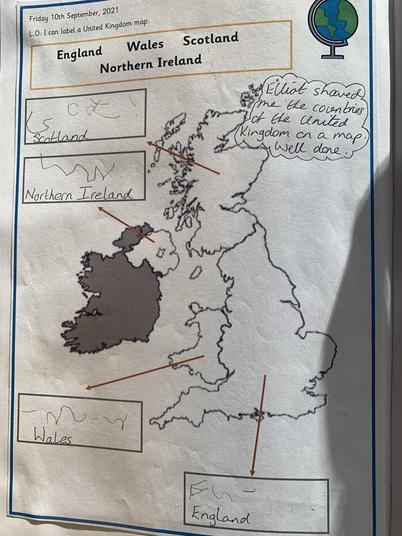 Friday 10th September, 2021
L.O: I can label a United Kingdom map.
England Wales Scotland
Northern Ireland
Elliot showed
me the countries
of the United
Kingdom on a map.
Well done.
Scotland
Northern Ireland
Wales
England